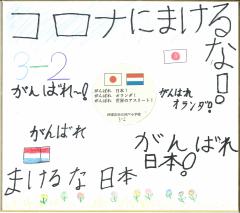 コロナにまけるな!!
3-2
がんばれ~!
がんばれ 日本!
がんばれ オランダ!
がんばれ 世界のアスリート!
3-2
がんばれ
オランダ!!
がんばれ
がんばれ
日本!
まけるな 日本